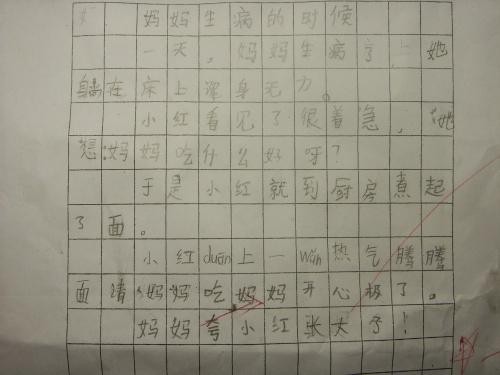 妈妈生病的时候
一天。妈妈生病了,她
躺在床上浑身无力。
小红看见了很着急,她
想妈妈吃什么好呀?
于是小红就到厨房煮起
了面。
小红duān上一wǎn热气腾腾
面请妈妈吃妈妈开心极了。
妈妈夸小红张大了!